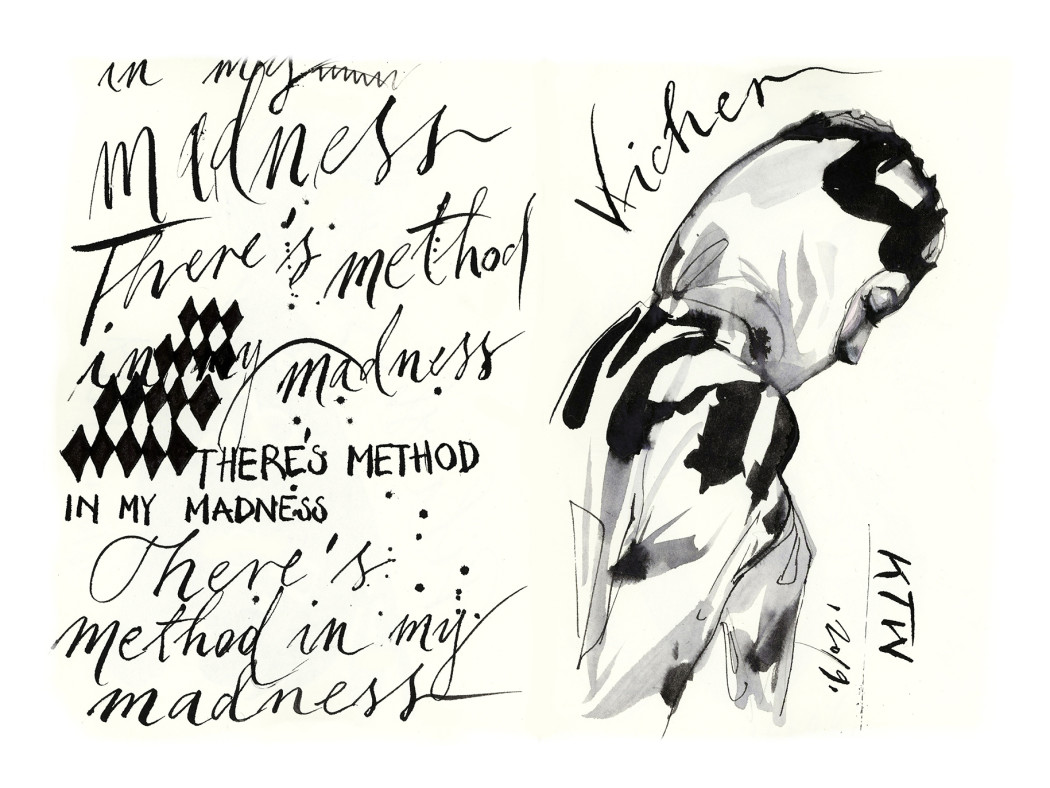 in my
madness
There's method
in my madness
THERE'S METHOD
IN MY MADNESS
There's
method in my
madness
KTW